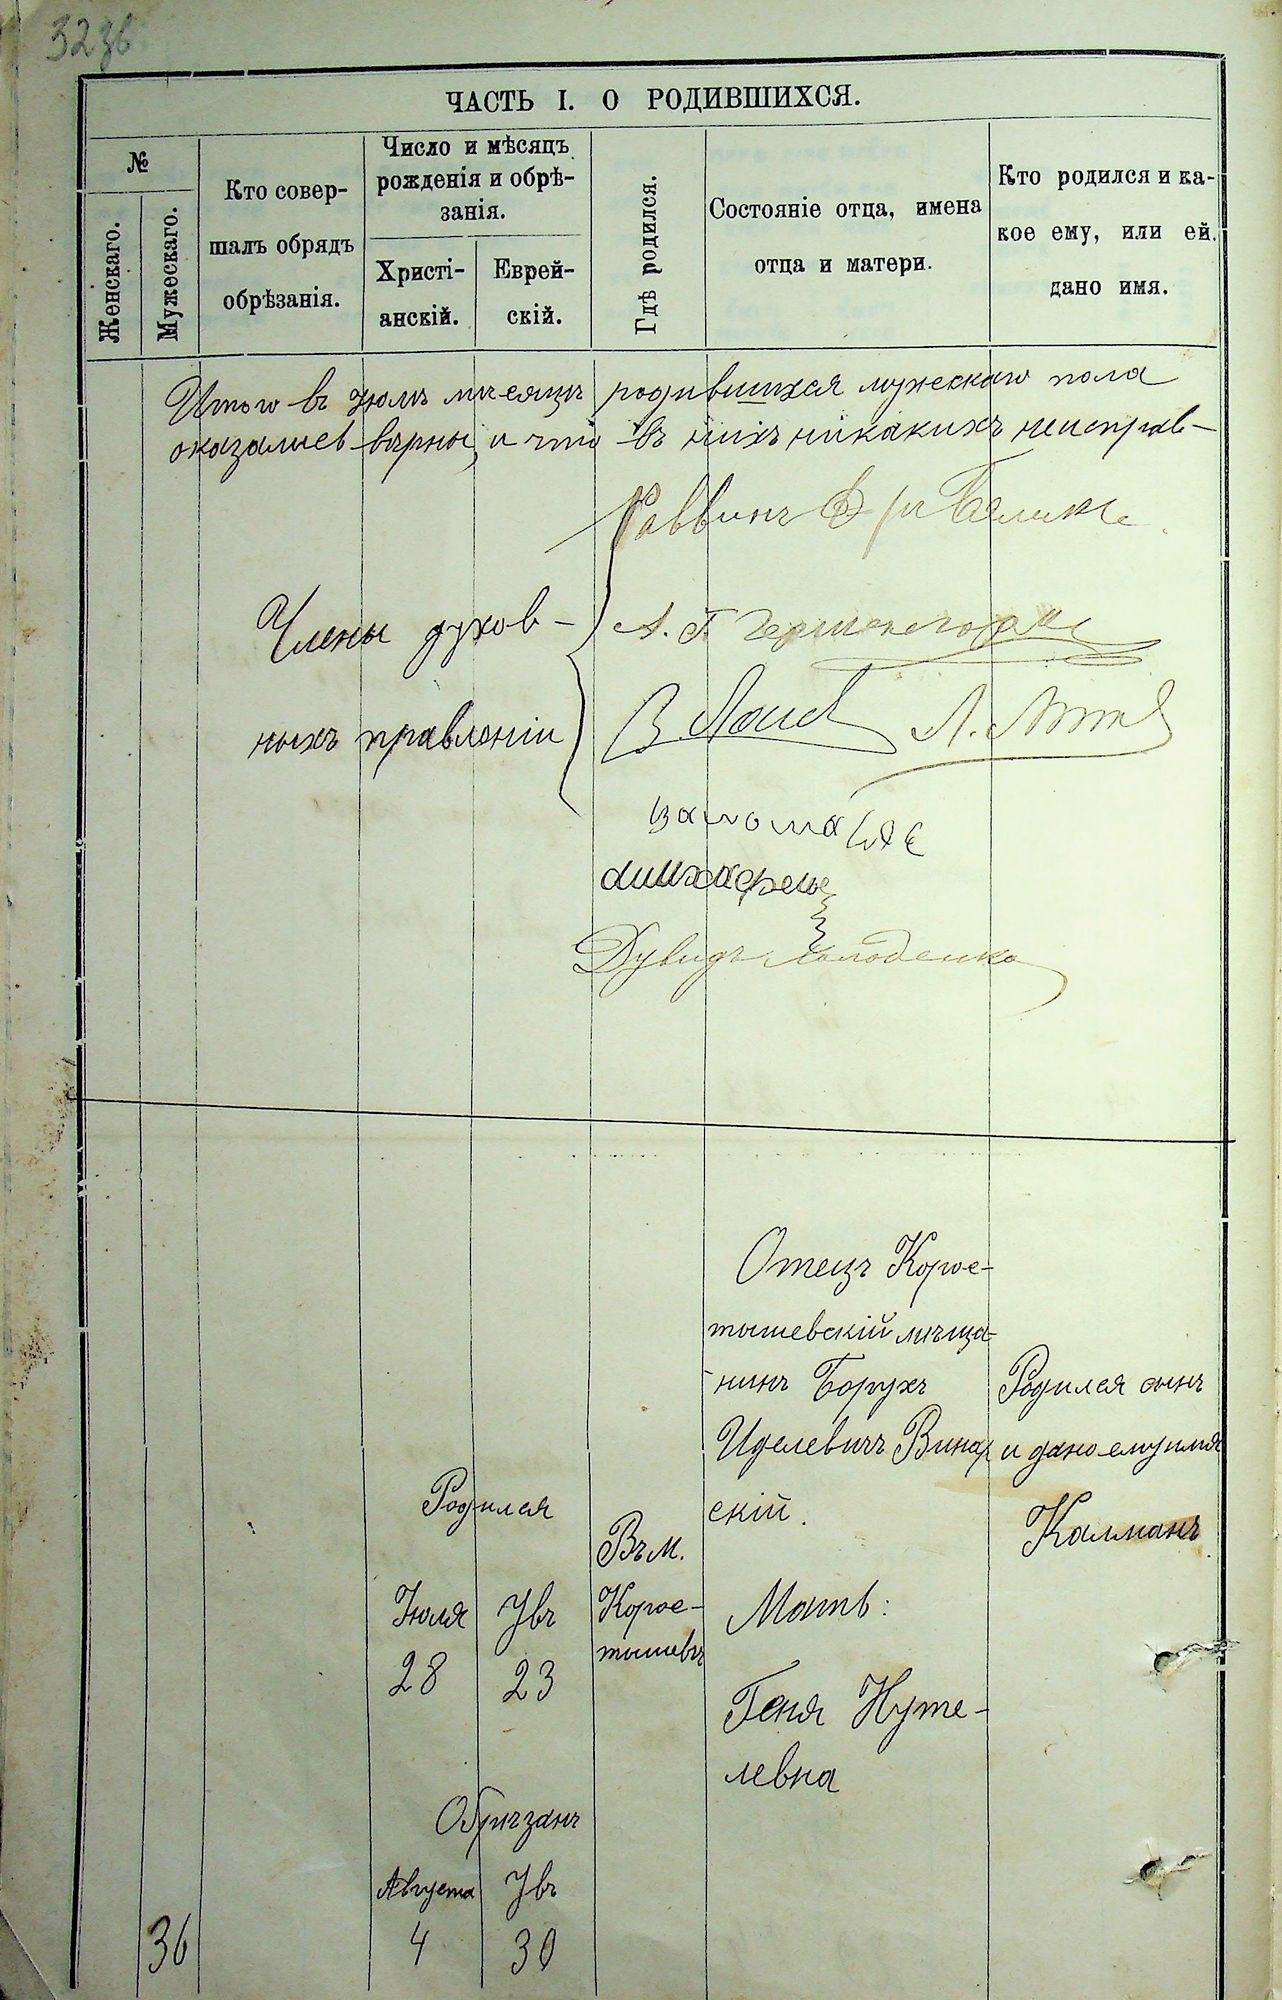 323б
ЧАСТЬ I. О РОДИВШИХСЯ.
№
Женскаго.
Мужескаго.
Кто совер-
шалъ обрядъ
обрѣзанія.
Число и мѣсяцъ
рожденія и обрѣ-
занія.
Христі-
анскій.
Еврей-
скій.
Гдѣ родился.
Состояніе отца, имена
отца и матери.
Кто родился и ка-
кое ему, или ей,
дано имя.
Итого въ Іюлѣ мѣсяцѣ родившихся мужескаго пола
оказались вѣрны, и что въ нихъ никакихъ неисправ-
Раввинъ
Члены духов-
ныхъ правленіи
А. Г.
Дувидъ Холоденко
36
Родился
Іюля
28
Увъ
23
Обрѣзанъ
Августа
4
Увъ
30
Въ м.
Корос-
тышевѣ
Отецъ Корос-
тышевскій мѣща-
нинъ Борухъ
Иделевичъ Винар
скій.
Мать:
Геня Нуте-
левна
Родился сынъ
и дано ему имя
Калманъ